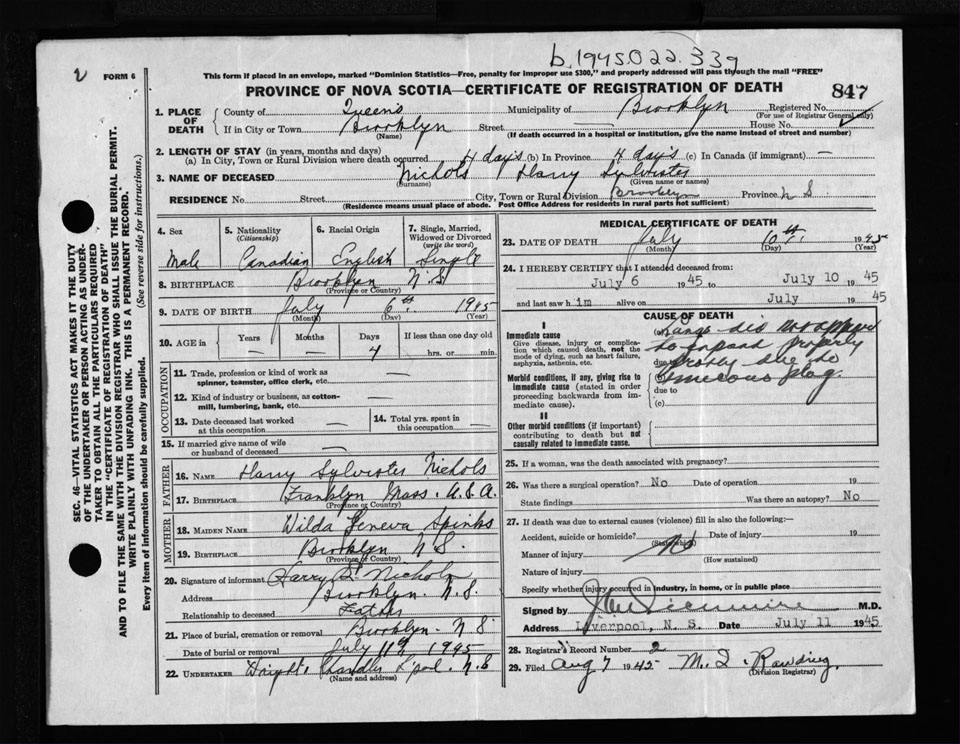 b.1945.022.339
2 FORM 6
This form if placed in an envelope, marked "Dominion Statistics—Free, penalty for improper use $300," and properly addressed will pass through the mail "FREE"
PROVINCE OF NOVA SCOTIA—CERTIFICATE OF REGISTRATION OF DEATH 847
SEC. 46—VITAL STATISTICS ACT MAKES IT THE DUTY
OF THE UNDERTAKER OR PERSON ACTING AS UNDER-
TAKER TO OBTAIN ALL THE PARTICULARS REQUIRED
IN THE "CERTIFICATE OF REGISTRATION OF DEATH"
AND TO FILE THE SAME WITH THE DIVISION REGISTRAR WHO SHALL ISSUE THE BURIAL PERMIT.
WRITE PLAINLY WITH UNFADING INK. THIS IS A PERMANENT RECORD.
Every item of information should be carefully supplied. (See reverse side for instructions.)
1. PLACE OF DEATH
County of Queens Municipality of Brooklyn Registered No.
(For use of Registrar General only)
If in City or Town Brooklyn Street — House No.
(Name) (If death occurred in a hospital or institution, give the name instead of street and number)
2. LENGTH OF STAY (in years, months and days)
(a) In City, Town or Rural Division where death occurred 4 days (b) In Province 4 days (c) In Canada (if immigrant) —
3. NAME OF DECEASED Nichols Harry Sylvester
(Surname) (Given name or names)
RESIDENCE No. Street City, Town or Rural Division Brooklyn Province N S.
(Residence means usual place of abode. Post Office Address for residents in rural parts not sufficient)
4. Sex Male
5. Nationality (Citizenship) Canadian
6. Racial Origin English
7. Single, Married, Widowed or Divorced (write the word) Single
8. BIRTHPLACE Brooklyn N.S
(Province or Country)
9. DATE OF BIRTH July 6th. 1945
(Month) (Day) (Year)
10. AGE in Years — Months — Days 4 If less than one day old
hrs. or min.
OCCUPATION
11. Trade, profession or kind of work as
spinner, teamster, office clerk, etc. —
12. Kind of industry or business, as cotton-
mill, lumbering, bank, etc. —
13. Date deceased last worked
at this occupation —
14. Total yrs. spent in
this occupation —
15. If married give name of wife
or husband of deceased —
FATHER
16. NAME Harry Sylvester Nichols
17. BIRTHPLACE Franklyn Mass. U.S.A.
(Province or Country)
MOTHER
18. MAIDEN NAME Wilda Geneva Spinks
19. BIRTHPLACE Brooklyn N.S.
(Province or Country)
20. Signature of informant Harry S. Nichols
Address Brooklyn. N.S.
Relationship to deceased Father
21. Place of burial, cremation or removal Brooklyn - N S.
Date of burial or removal July 11th 1945
22. UNDERTAKER Chandler L'pool. N.S
(Name and address)
MEDICAL CERTIFICATE OF DEATH
23. DATE OF DEATH July 10th. 1945
(Month) (Day) (Year)
24. I HEREBY CERTIFY that I attended deceased from:
July 6 1945 to July 10 1945
and last saw him alive on July 1945
CAUSE OF DEATH
I
Immediate cause
Give disease, injury or complica-
tion which caused death, not the
mode of dying, such as heart failure,
asphyxia, asthenia, etc.
Morbid conditions, if any, giving rise to
immediate cause (stated in order
proceeding backwards from im-
mediate cause).
II
Other morbid conditions (if important)
contributing to death but not
causally related to immediate cause.
(a) Lungs did not appear
to expand properly
due to
mucous plug.
due to
(c)
25. If a woman, was the death associated with pregnancy?
26. Was there a surgical operation? No Date of operation 19
State findings Was there an autopsy? No
27. If death was due to external causes (violence) fill in also the following:—
Accident, suicide or homicide? Date of injury 19
(State which)
Manner of injury No
(How sustained)
Nature of injury
Specify whether injury occurred in industry, in home, or in public place
Signed by M.D.
Address Liverpool, N. S. Date July 11 1945
28. Registrar's Record Number 2
29. Filed Aug 7 1945 Rawding.
(Division Registrar)